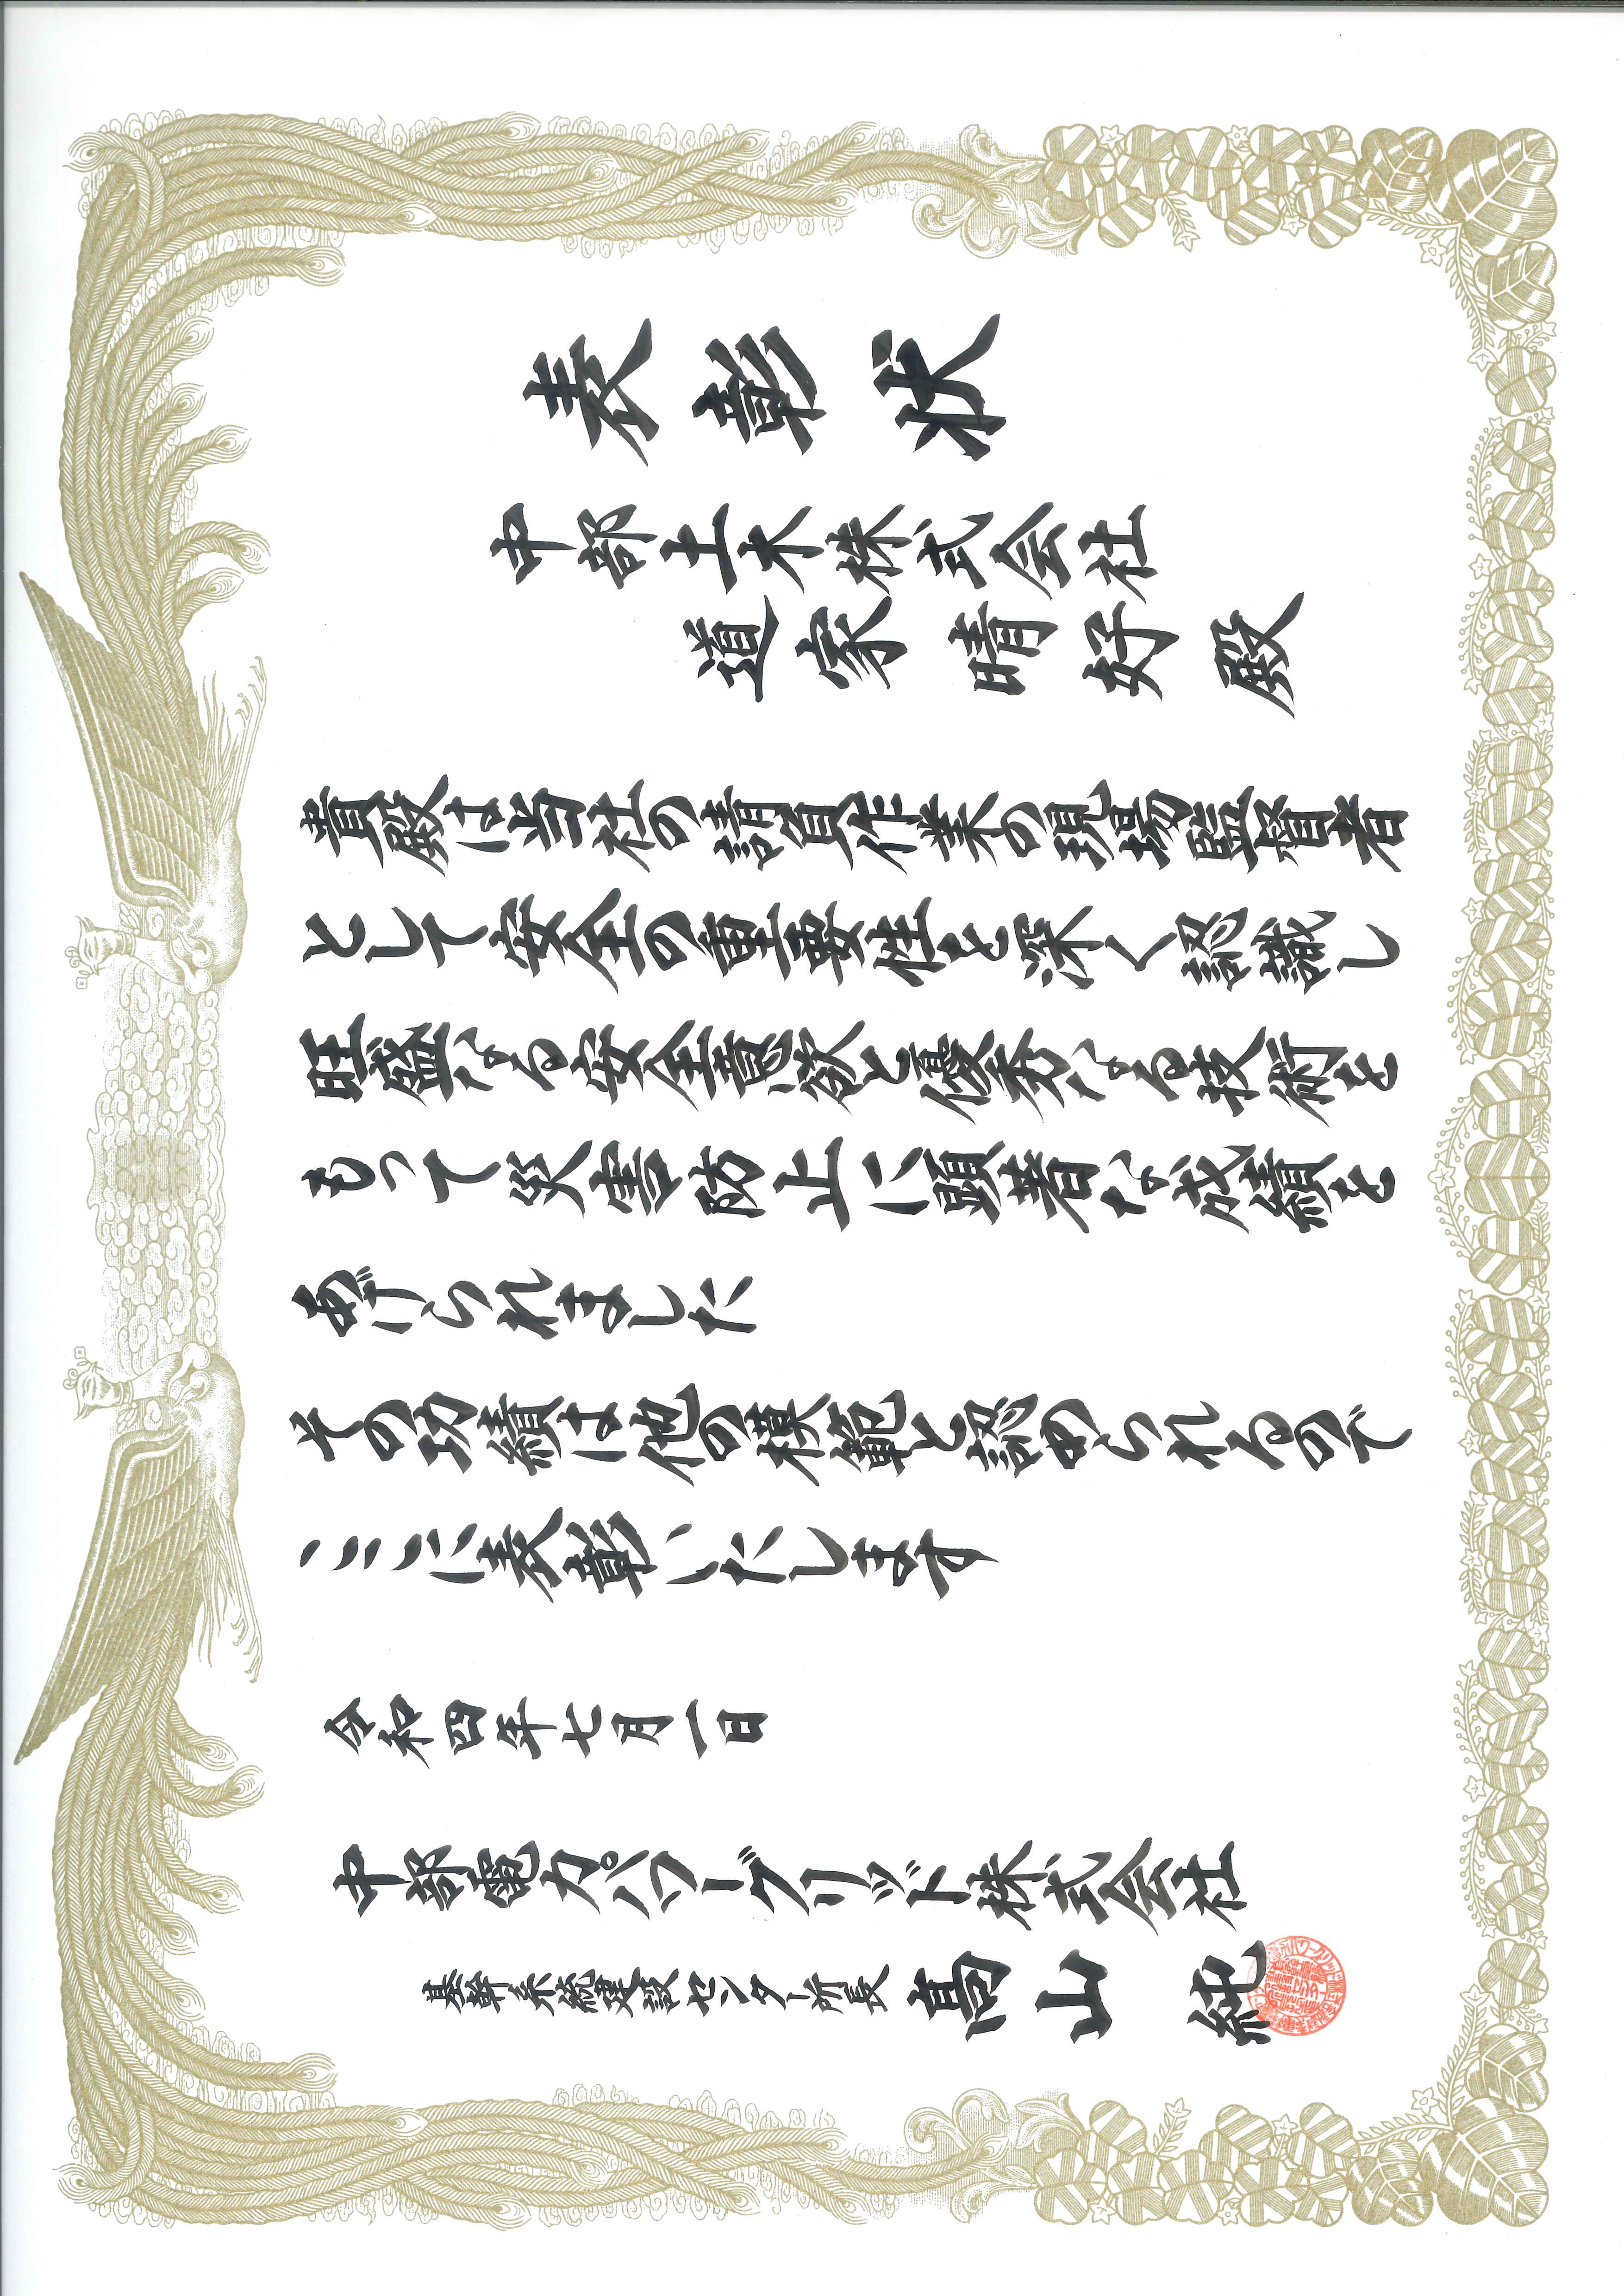 表彰状
中部土木株式会社
道家晴好殿
貴殿は当社の請負作業の現場監督者
として安全の重要性を深く認識し
旺盛なる安全意欲と優秀なる技術を
もって災害防止に顕著な成績を
あげられました
その功績は他の模範と認められるので
ここに表彰いたします
令和四年七月一日
中部電力パワーグリッド株式会社
基幹系統建設センター所長 髙山 純